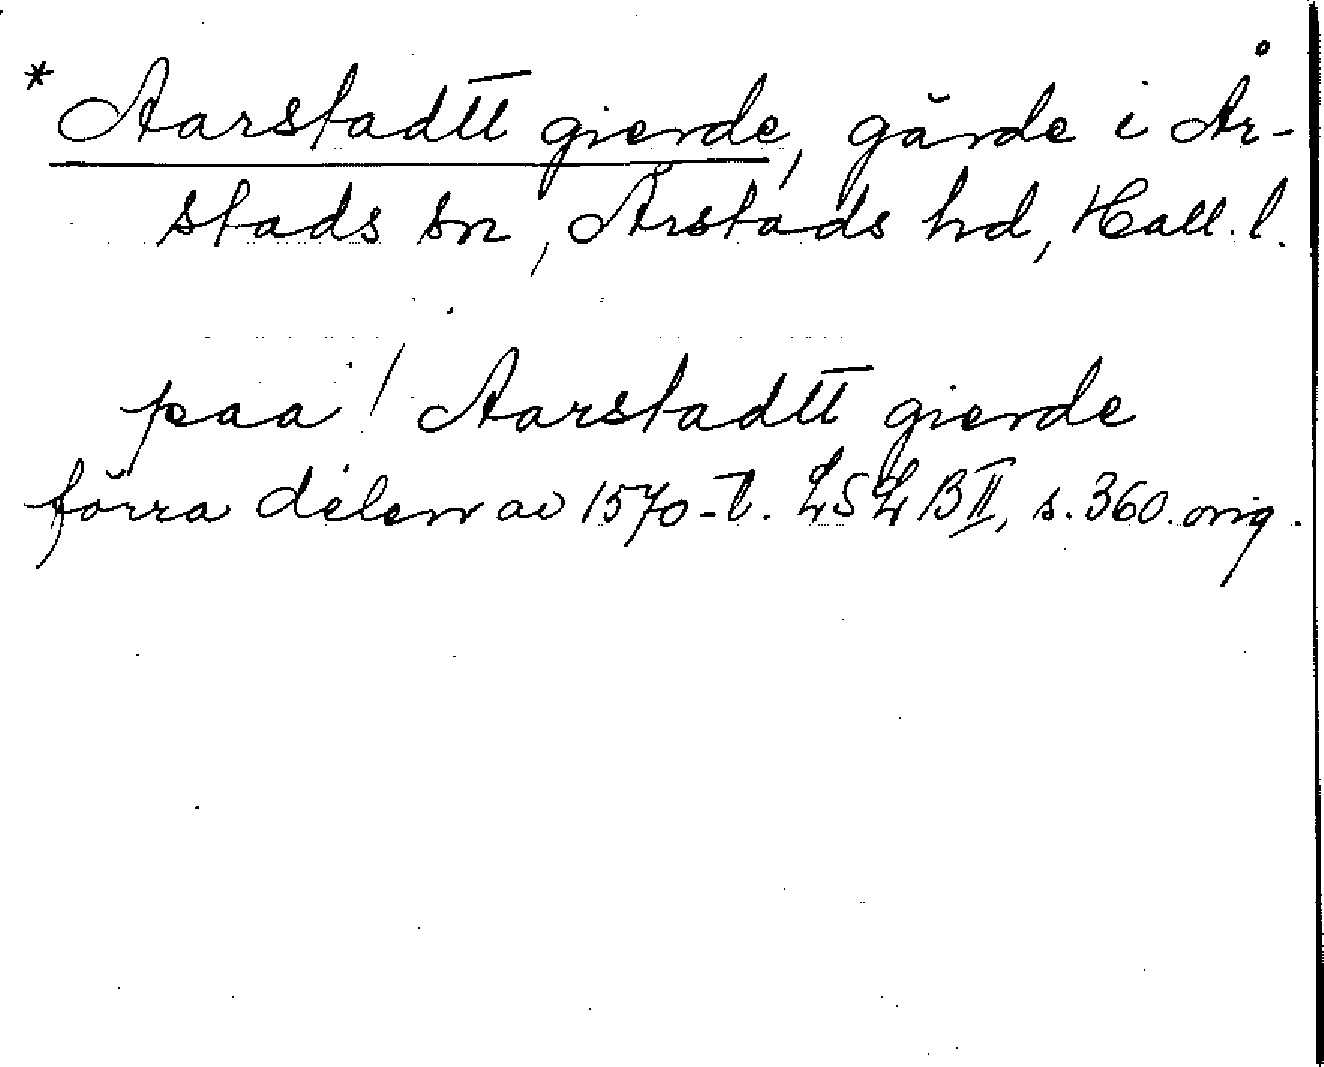 *Aarstadtt gierde, gärde i År-
stads sn, Årstads hd, Hall. l.
paa! Aarstadtt gierde
förra delen av 1570-t. LSLB II, s. 360. orig.